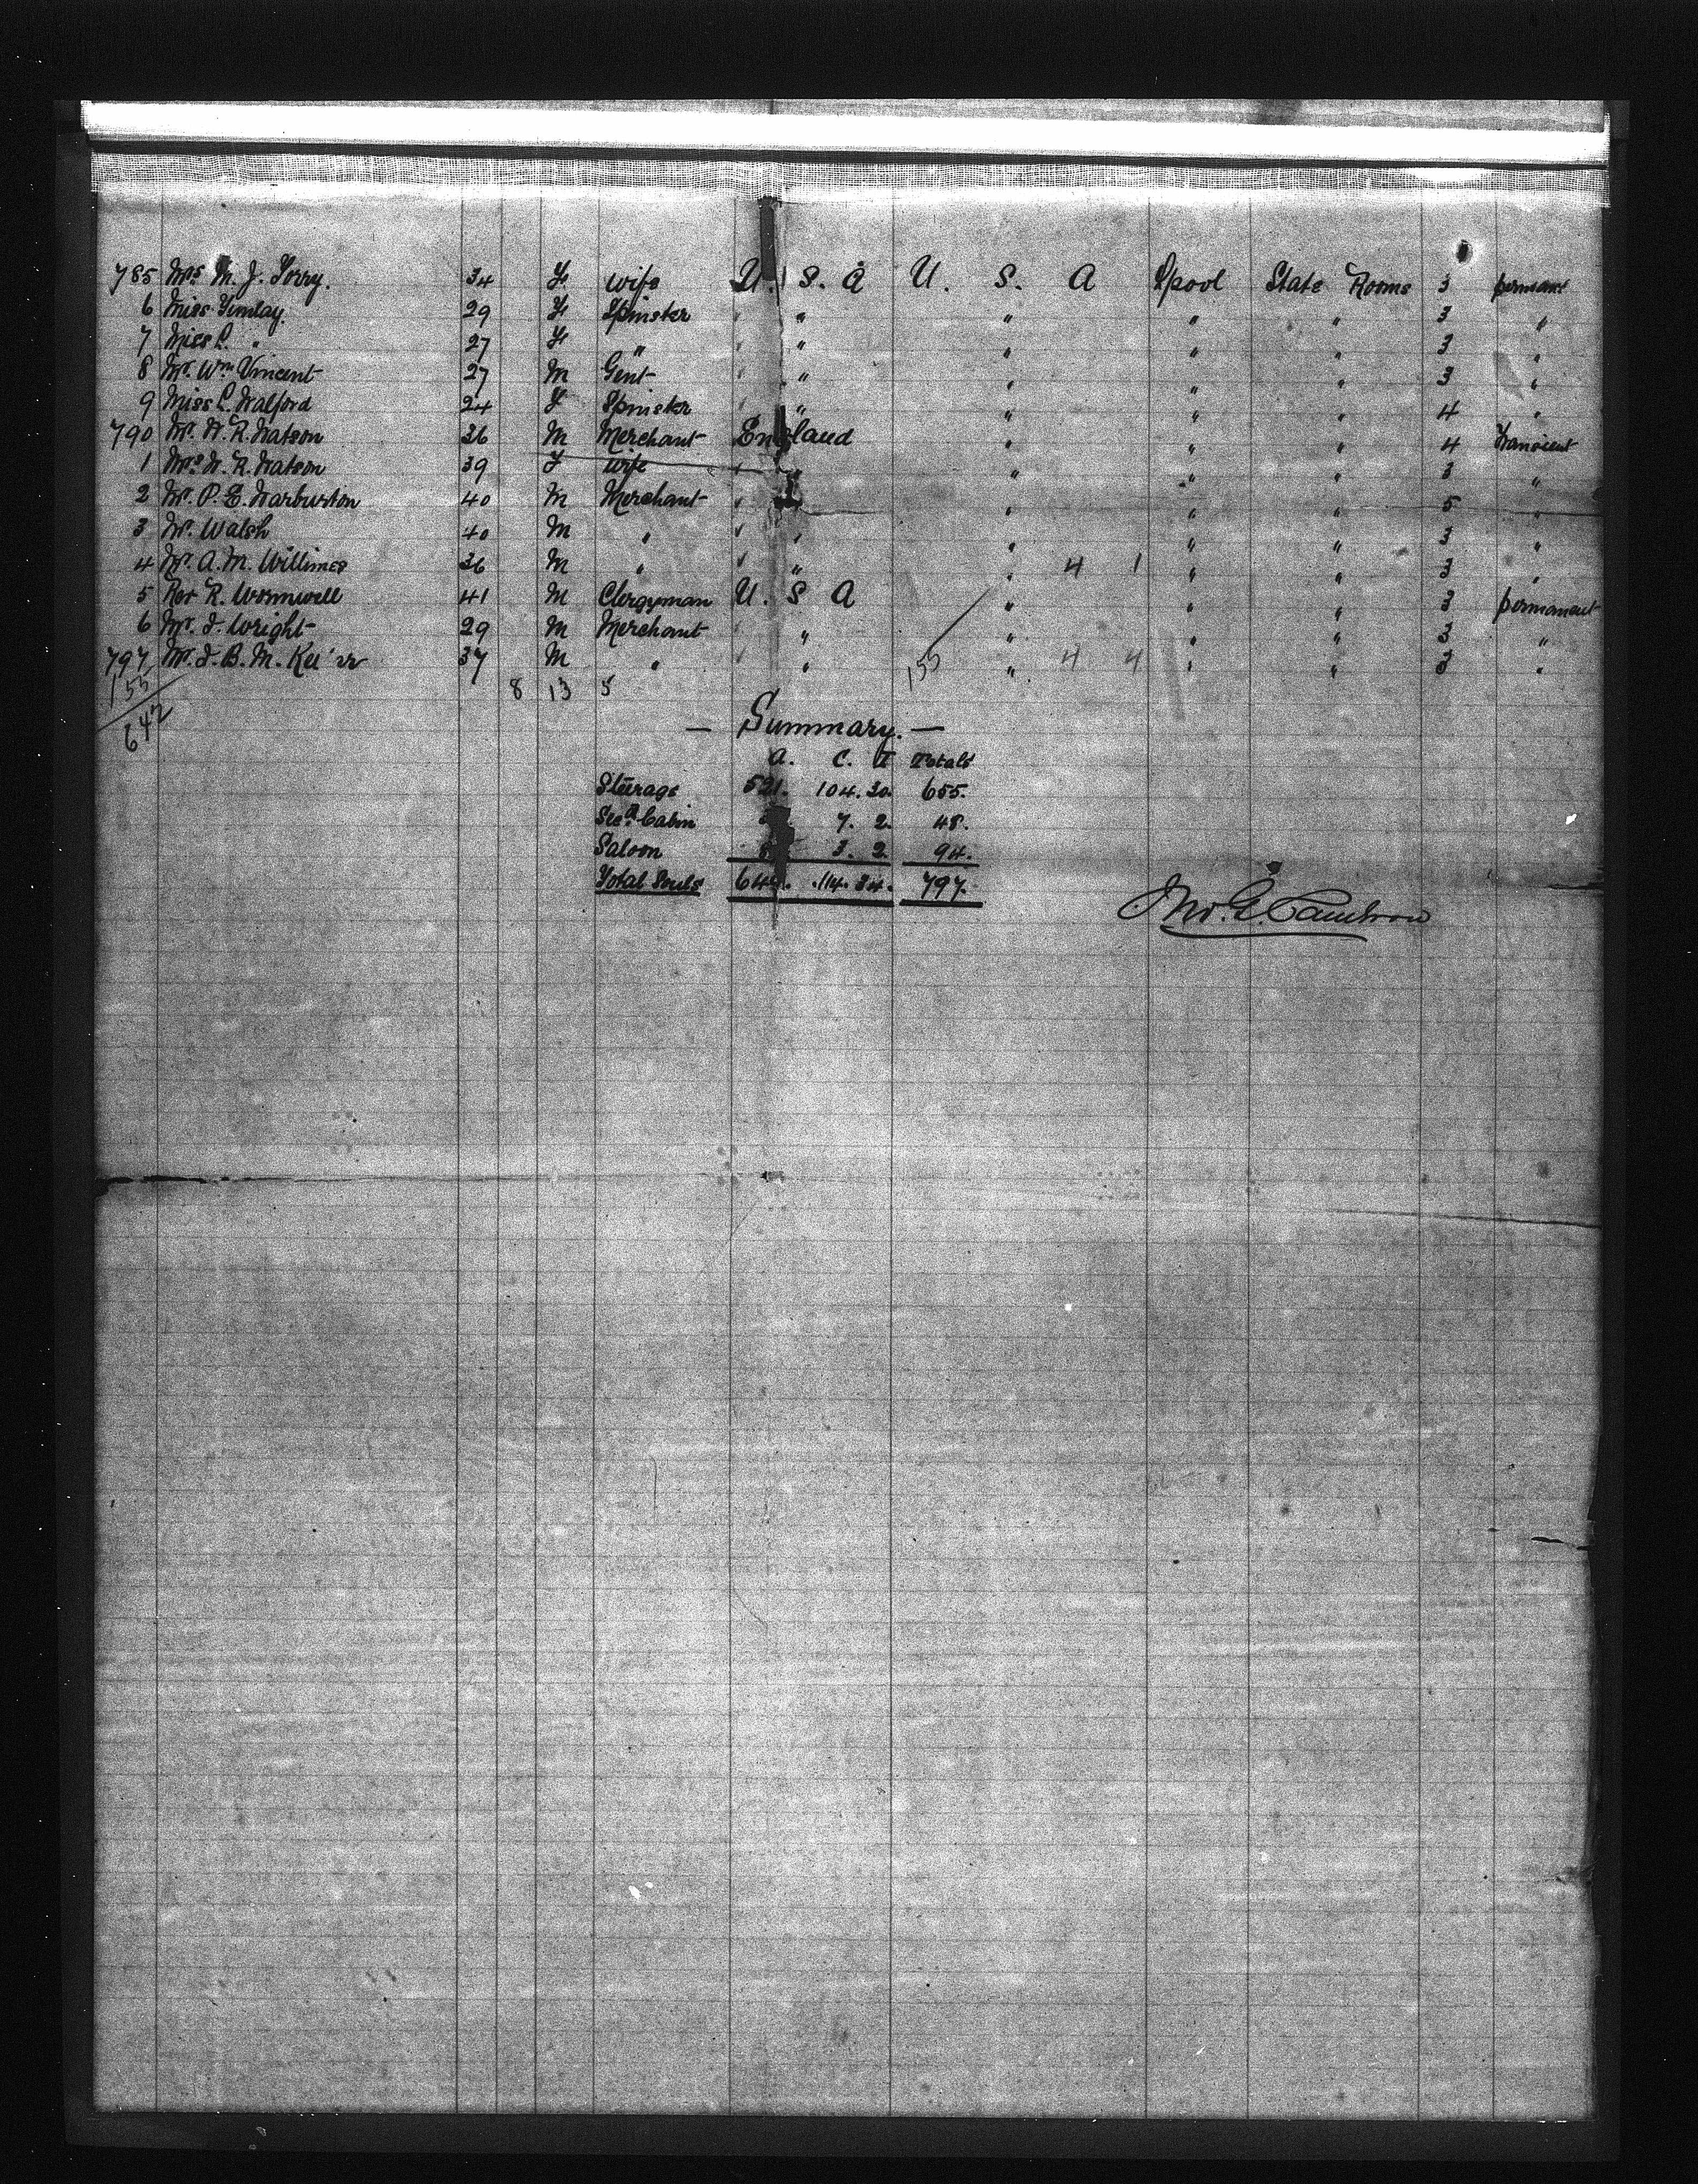 785 Mrs. M. J. Torry. 34 F wife U. S. A U. S. A Lpool State Rooms 3 permant
6 Miss Timlay. 29 F Spinster " " " " " 3 "
7 Miss L. " 27 F " " " " " " 3 "
8 Mr. Wm Vincent 27 M Gent " " " " " 3 "
9 Miss L. Walford 24 F Spinster " " " " " 4 "
790 Mr. W. R. Watson 36 M Merchant England " " " 4 Transient
1 Mrs W. R. Watson 39 F wife " " " " " 3 "
2 Mr. P. E. Warburton 40 M Merchant " " " " 5 "
3 Mr. Walsh 40 M " " " " " " 3 "
4 Mr. A. M. Willimes 36 M " " " " 4 1 " " 3 "
5 Rev R. Wormwell 41 M Clergyman U. S A " " " 3 permanent
6 Mr. J. Wright 29 M Merchant " " " " " 3 "
797 Mr. J. B. M. 37 M " " " 155 " 4 4 " " 3 "
155 8 13 5
642
— Summary. —
A. C. I Totals
Steerage 521. 104. 30. 655.
Secd. Cabin 7. 2. 48.
Saloon 8 3. 2. 94.
Total Souls 649. 114. 34. 797.